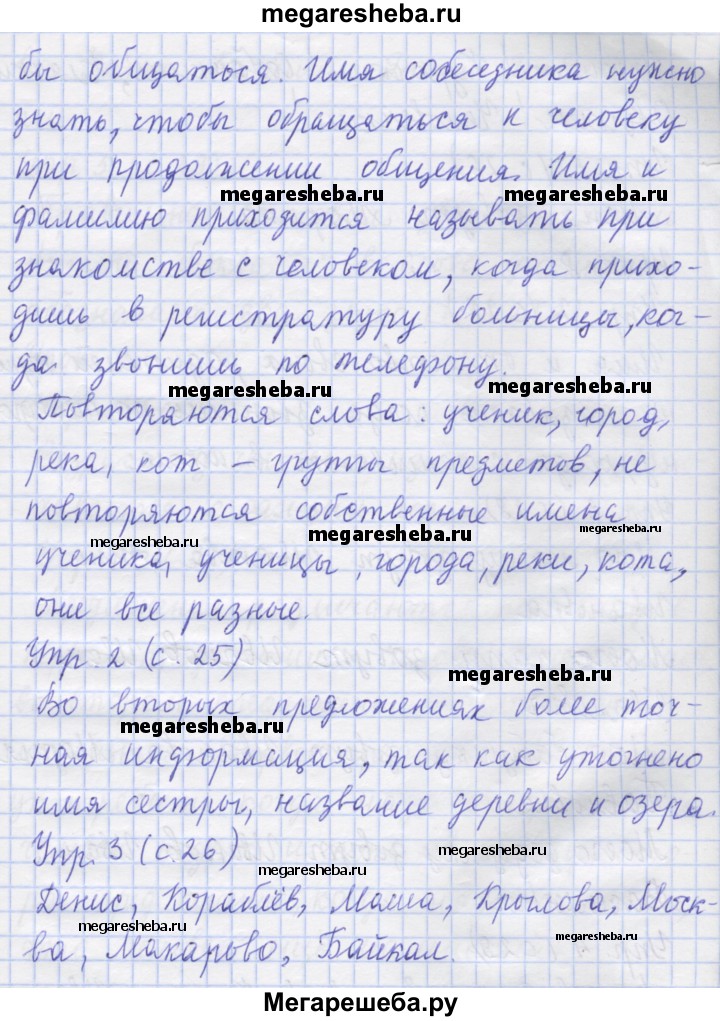 megaresheba.ru
бы общаться. Имя собеседника нужно
знать, чтобы обращаться к человеку
при продолжении общения. Имя и
megaresheba.ru megaresheba.ru
фамилию приходится называть при
знакомстве с человеком, когда прихо-
дишь в регистратуру больницы, ког-
да звонишь по телефону.
megaresheba.ru megaresheba.ru
Повторяются слова: ученик, город,
река, кот – группы предметов, не
повторяются собственные имена
megaresheba.ru megaresheba.ru megaresheba.ru
ученика, ученицы, города, реки, кота,
они все разные.
Упр 2 (с. 25)
megaresheba.ru
Во вторых предложениях более точ-
megaresheba.ru
ная информация, так как уточнено
имя сестры, название деревни и озера.
Упр. 3 (с. 26)
megaresheba.ru megaresheba.ru
Денис, Кораблёв, Маша, Крылова, Моск-
megaresheba.ru megaresheba.ru
ва, Макарово, Байкал.
Мегарешеба.ру